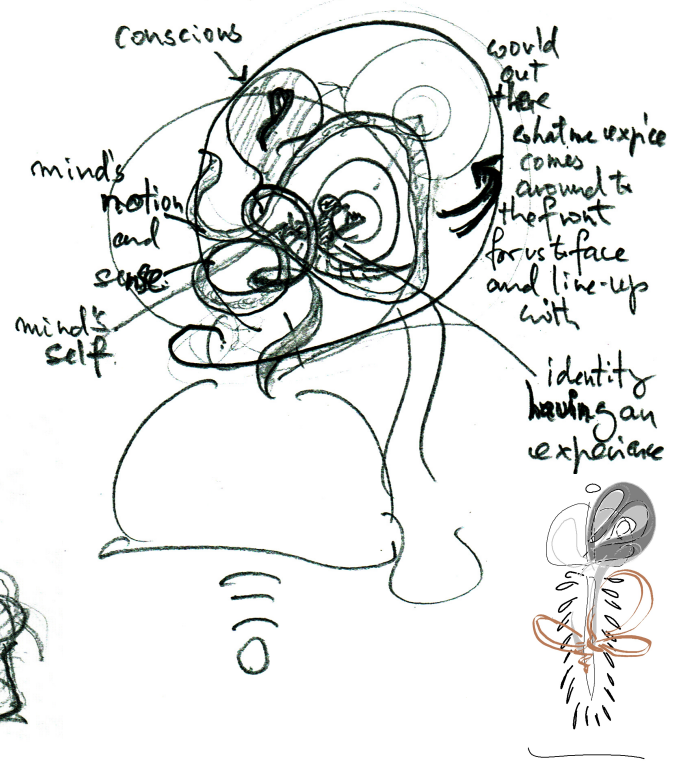 conscious
would
out
there
what we expice
comes
around to
the front
for us to face
and line-up
with
mind's
motion
and
sense
mind's
self
identity
having an
experience